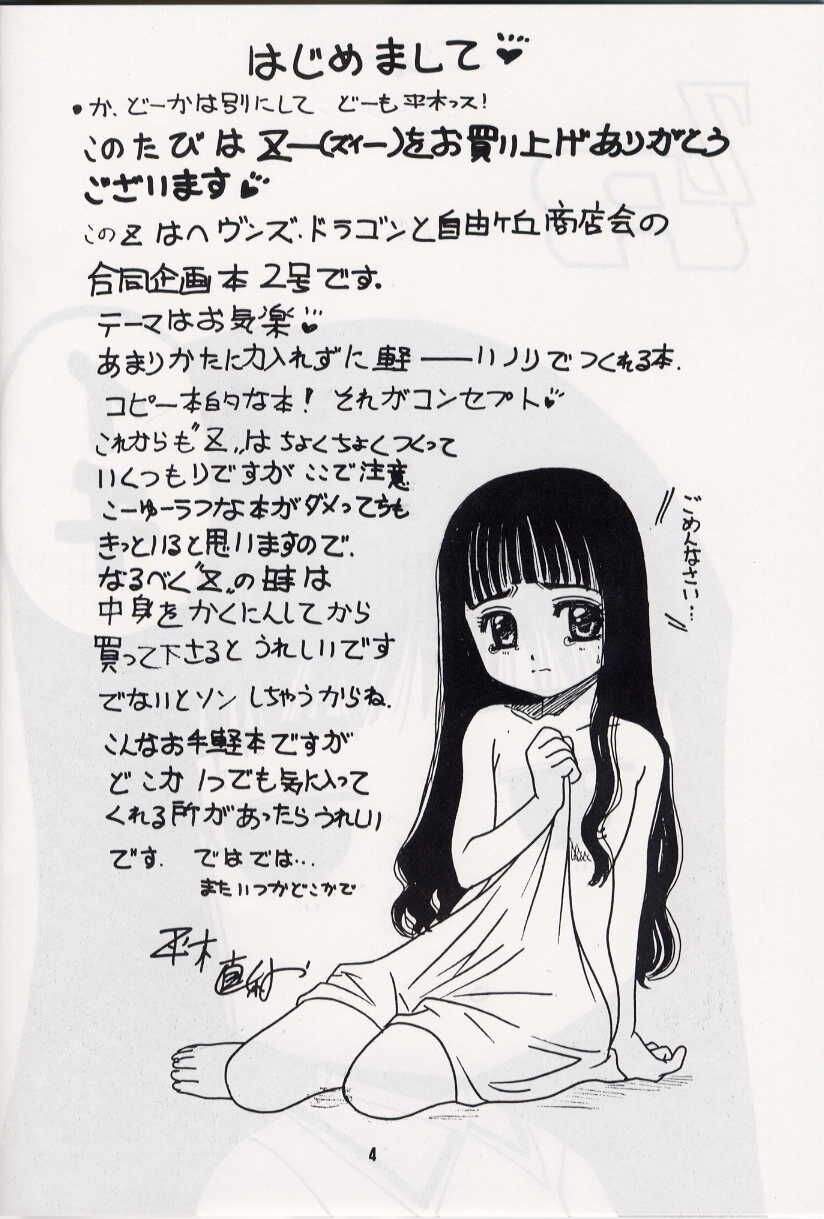 はじめまして♥
・か、どーかは別にして どーも平木っス!
このたびは Z―(ズィー)をお買い上げありがとう
ございます♥
このZはヘヴンズ・ドラゴンと自由ヶ丘商店会の
合同企画本2号です.
テーマはお気楽♥
あまりかたに力入れずに軽――いノリでつくれる本.
コピー本的な本! それがコンセプト♥
これからも〝Z〟はちょくちょくつくって
いくつもりですが ここで注意
こーゆーうつな本がダメってちも
きっといると思いますので.
なるべく〝Z〟の時は
中身をかくにんしてから
買って下さると うれしいです
でないとソン しちゃうからね.
こんなお手軽本ですが
どこか1つでも気に入って
くれる所があったらうれしい
です. ではでは…
またいつかどこかで
平木直利
ごめんなさい…
4